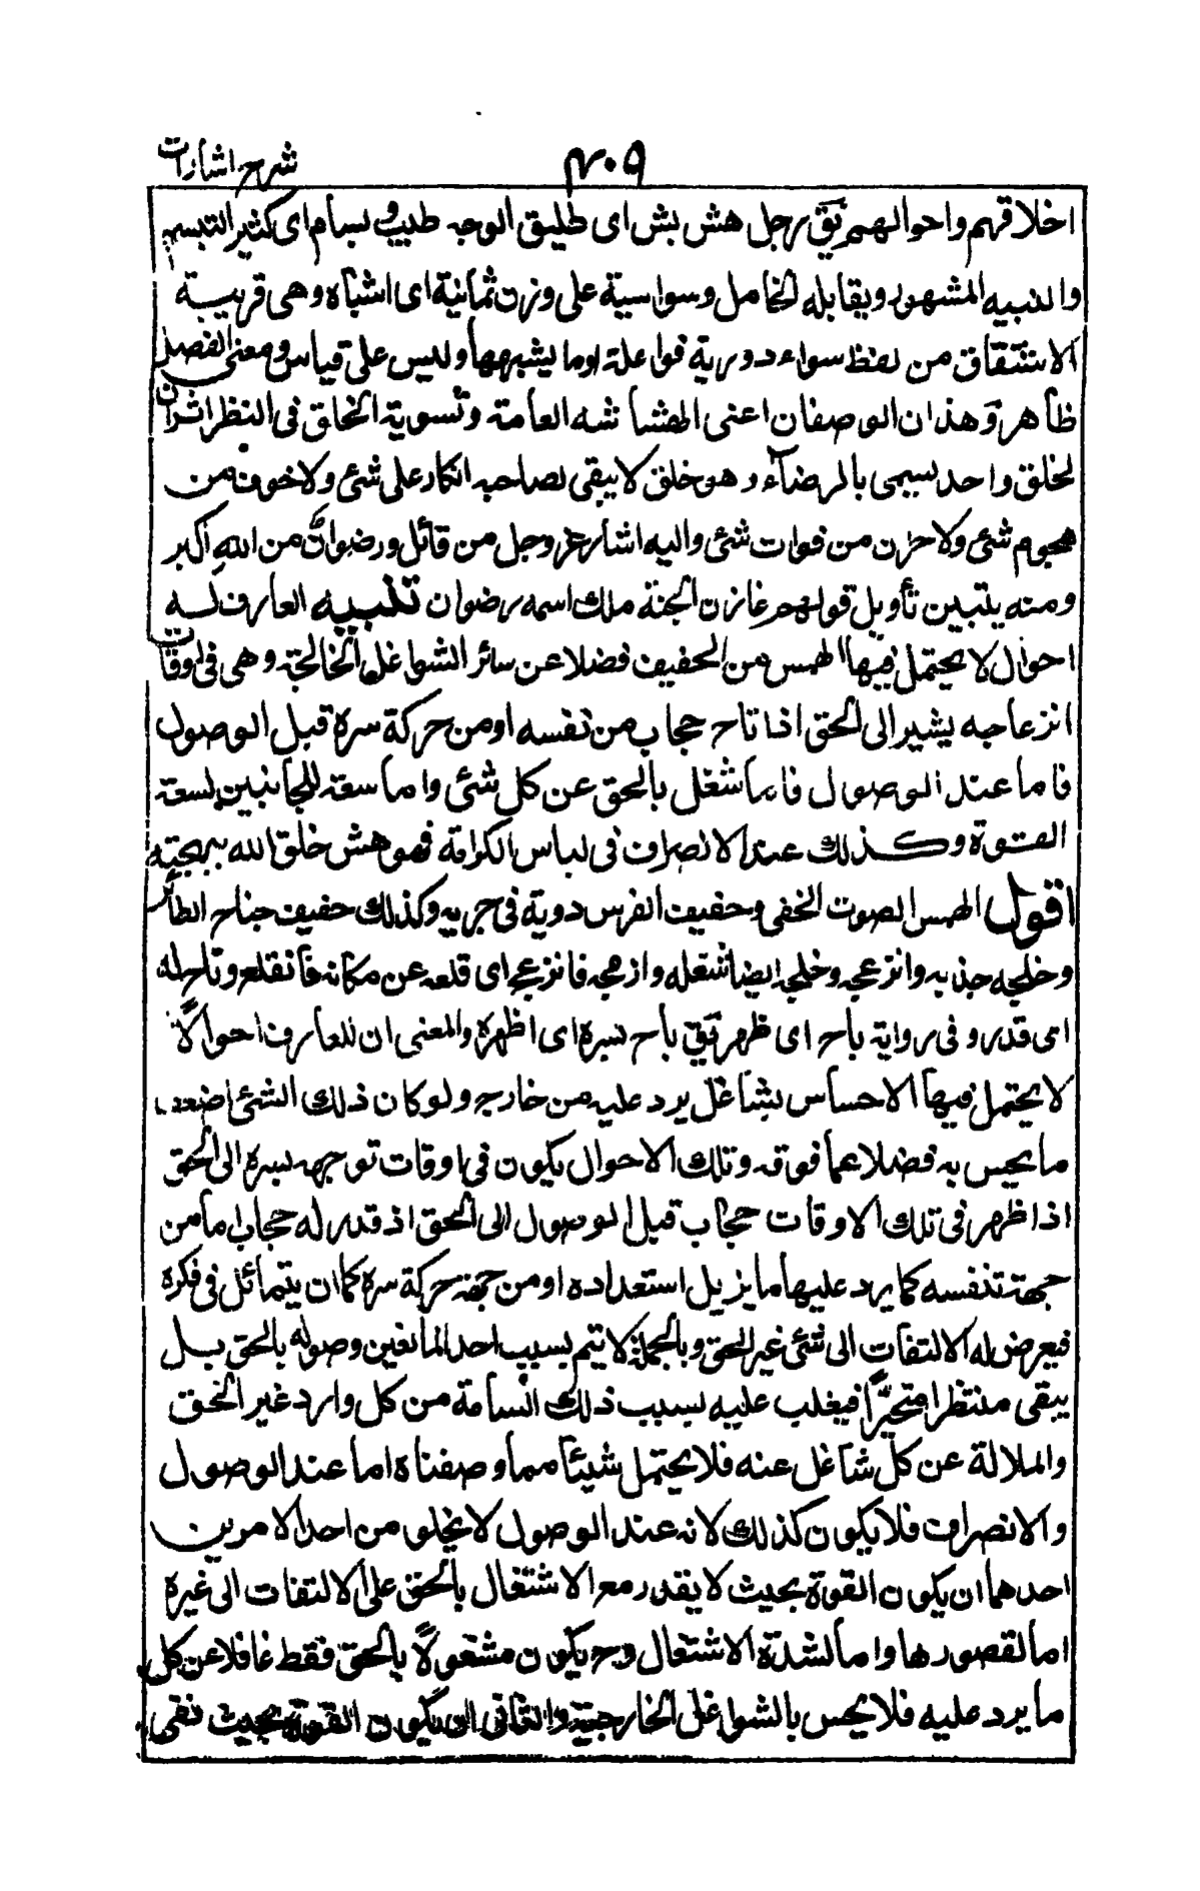 شرح اشارات
۴۰۹
اخلاقهم واحوالهم يق رجل هش بش اى طليق الوجه طيب وبسام اى كثير التبسم
والنبيه المشهور ويقابله الخامل وسواسية على وزن ثمانية اى اشباه وهى قريبة
الاشتقاق من لفظ سواء دورية فواعلة اوما يشبهها وليس على قياس ومعنى الفصل
ظاهر وهذان الوصفان اعنى الهشاشه العامة وتسوية الخلق فى النظر اثران
لخلق واحد يسمى بالرضاء وهو خلق لا يبقى لصاحبه انكار على شئ ولا خوف من
هجوم شئ ولا حزن من فوات شئ واليه اشار عز وجل من قائل ورضوان من الله اكبر
ومنه يتبين تأويل قولهم خازن الجنة ملك اسمه رضوان تنبيه العارف له
احوال لا يحتمل فيها الهمس من الحفيف فضلا عن سائر الشواغل الخالجة وهى فى اوقات
انزعاجه بشير الى الحق اذا تاح حجاب من نفسه اومن حركة سره قبل الوصول
فاما عند الوصول فاما شغل بالحق عن كل شئ واما سعة للجانبين لسعة
القوة وكذلك عند الانصراف فى لباس الكرامة فهو هش خلق الله ببهجته
اقول الهمس الصوت الخفى وحفيف الفرس دوية فى جريه وكذلك حفيف جناح الطائر
وخلجه جذبه وانزعجه وخلجه ايضا شغله وازعجه فانزعج اى قلعه عن مكانه فانقلع وتاح له
اى قدر وفى رواية باح اى ظهر يق باح بسره اى اظهره والمعنى ان للعارف احوالا
لا يحتمل فيها الاحساس بشاغل يرد عليه من خارج ولو كان ذلك الشئ اضعف
ما يحس به فضلا عما فوقه وتلك الاحوال يكون فى اوقات توجهه بسره الى الحق
اذا ظهر فى تلك الاوقات حجاب قبل الوصول الى الحق اذ قدر له حجاب اما من
جهة نفسه كما يرد عليها ما يزيل استعداده او من جهة حركة سره كما ان يتمائل فى فكره
فيعرض له الالتفات الى شئ غير الحق وبالجملة لا يتم بسبب احد المانعين وصوله بالحق بل
يبقى منتظرا متحيرا فيغلب عليه بسبب ذلك السأمة من كل وارد غير الحق
والملالة عن كل شاغل عنه فلا يحتمل شيئا مما وصفناه اما عند الوصول
والانصراف فلا يكون كذلك لانه عند الوصول لا يخلو من احد الامرين
احدهما ان يكون القوة بحيث لا يقدر مع الاشتغال بالحق على الالتفات الى غيره
اما لقصورها واما لشدة الاشتغال وح يكون مشغولا بالحق فقط غافلا عن كل
ما يرد عليه فلا يحس بالشواغل الخارجية والثانى ان يكون القوة بحيث تفى